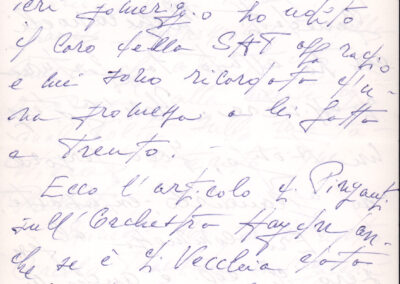 ieri pomeriggio ho udito
il Coro della SAT alla radio
e mi sono ricordata d'u-
na promessa a lei fatta
a Trento. -
Ecco l'articolo di Pinzauti
sull'Orchestra Haydn an-
che se è di vecchia data